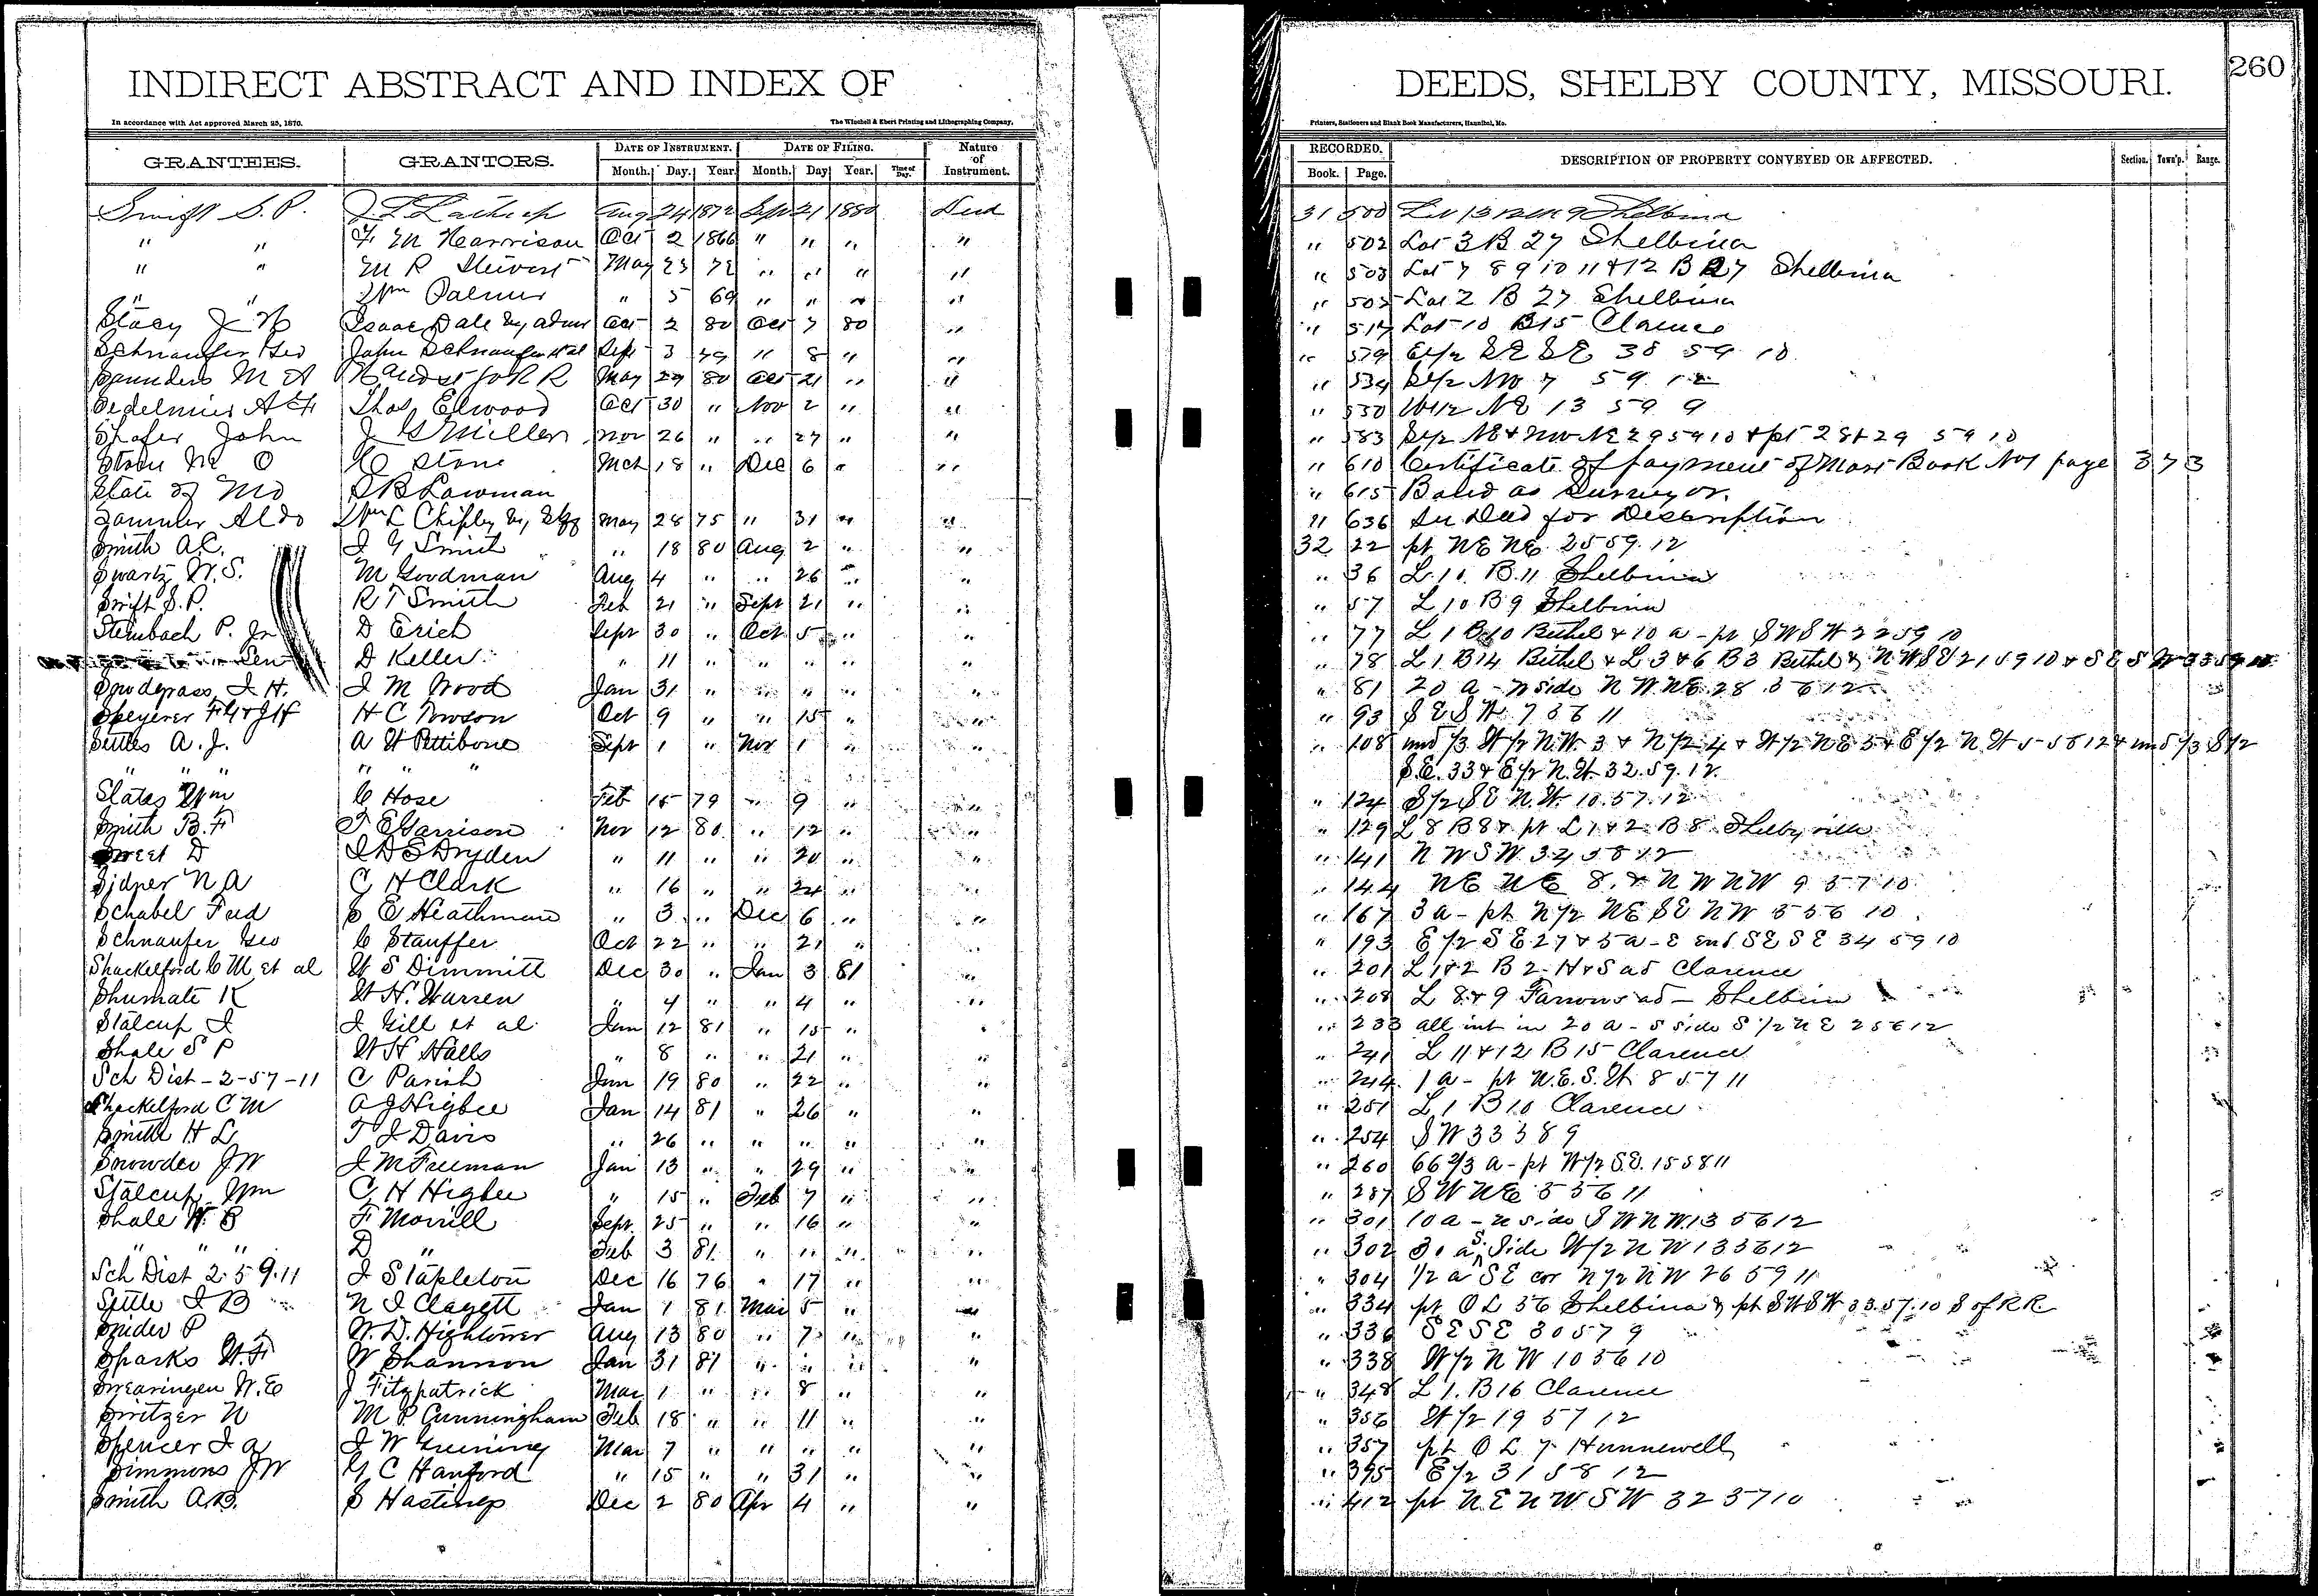 INDIRECT ABSTRACT AND INDEX OF DEEDS, SHELBY COUNTY, MISSOURI. 260
In accordance with Act approved March 25, 1870. The Winchell & Ebert Printing and Lithographing Company, Printers, Stationers and Blank Book Manufacturers, Hannibal, Mo.
GRANTEES. GRANTORS. DATE OF INSTRUMENT. DATE OF FILING. Nature of Instrument. RECORDED. DESCRIPTION OF PROPERTY CONVEYED OR AFFECTED. Section. Town'p. Range.
Month. Day. Year. Month. Day Year. Time of Day. Book. Page.
Swift S. P. J L Lathrop Aug 24 1872 Sept 21 1880 Deed 31 500 Lot 13 Shelbina
" " F. M Harrison Oct 2 1866 " " " " " 502 Lot 3 B 27 Shelbina
" " M R May 23 72 " " " " " 503 Lot 7 8 9 10 11 & 12 B 27 Shelbina
" " Wm Palmer " 5 69 " " " " " 505 Lot 2 B 27 Shelbina
Stacy J H Isaac Dale by admr Oct 2 80 Oct 7 80 " " 517 Lot 10 B15 Clarence
Schnaufer Geo John Schnaufer et al Sept 3 79 " 8 " " " 529 E1/2 SE SE 38 59 10
Saunders M A H and St Jo R R May 29 80 Oct 21 " " " 534 S1/2 NW 7 59 12
A F Thos Elwood Oct 30 " Nov 2 " " " 550 W1/2 NE 13 59 9
Shafer John J S Miller Nov 26 " " 27 " " " 583 S1/2 NE & NW NE 29 59 10 & pt 28 & 29 59 10
O Stone Mch 18 " Dec 6 " " " 610 Certificate of payment of Mort Book No 1 page 373
State of Mo S B Lawman " 615 Bond as Surveyor.
Aldo Wm L Chipley by Shff May 28 75 " 31 " " " 636 See Deed for Description
Smith A.C. J Y Smith " 18 80 Aug 2 " " 32 22 pt NE NE 25 59.12
Swartz W. S. M Goodman Aug 4 " " 26 " " " 36 L 10 B.11 Shelbina
Swift S. P. R T Smith Feb 21 " Sept 21 " " " 57 L 10 B 9 Shelbina
Steinbach P. Jr D Erich Sept 30 " Oct 5 " " " 77 L 1 B 10 Bethel & 10 a - pt SW SW 22 59 10
" Sen D Keller " 11 " " " " " " 78 L 1 B14 Bethel & L 3 & 6 B 3 Bethel & NW SE 21 59 10 & SE SW 33 59 10
Snodgrass, J H. J M Wood Jan 31 " " " " " " 81 20 a - N side N W NE 28 56 12
Speyerer F G & J H H C Towson Oct 9 " " 15 " " " 93 S E S W 7 56 11
Settles A. J. A W Pettibone Sept 1 " Nov 1 " " " 108 und 1/3 W1/2 N.W. 3 & N1/2 4 & W1/2 NE 5 & E1/2 N W 5-58 12 & und 1/3 S1/2
" " " " " " S.E. 33 & E1/2 N.W. 32.59.12.
Slates Wm C Hose Feb 15 79 " 9 " " " 124 S1/2 SE N.W. 10.57.12
Smith B. F T E Garrison Nov 12 80 " 12 " " " 129 L 8 B 8 & pt L 1 & 2 B 8 Shelbyville
Sweet D J D S Dryden " 11 " " 20 " " " 141 N W S W 34 58 12
Sidner N A C H Clark " 16 " " 24 " " " 144 NE NE 8. & N W NW 9 57 10
Schabel Fred S E Heathman " 3 " Dec 6 " " " 167 3 a - pt N1/2 NE SE NW 5 56 10
Schnaufer Geo C Stauffer Oct 22 " " 21 " " " 193 E1/2 SE 27 & 5 a - E end SE SE 34 59 10
Shackelford C M et al W S Dimmitt Dec 30 " Jan 3 81 " " 201 L 1 & 2 B 2 H & S ad Clarence
Shumate K W H. Warren " 4 " " 4 " " " 208 L 8 & 9 Farrows ad - Shelbina
Stalcup J J Gill et al Jan 12 81 " 15 " " " 233 all int in 20 a - S side S 1/2 N E 2 56 12
Shale S P W H Halls " 8 " " 21 " " " 241 L 11 & 12 B 15 Clarence
Sch Dist - 2-57-11 C Parish Jun 19 80 " 22 " " " 244 1 a - pt N.E. S. W. 8 57 11
Shackelford C M A J Higbee Jan 14 81 " 26 " " " 251 L 1 B 10 Clarence
Smith H L T J Davis " 26 " " " " " " 254 S W 33 58 9
Snowder JW J M Freeman Jan 13 " " 29 " " " 260 66 2/3 a - pt W1/2 S.E. 15 58 11
Stalcup Wm C H Higbee " 15 " Feb 7 " " " 287 S W NE 5 56 11
Shale W. B F Morrill Sept 25 " " 16 " " " 301 10 a - N side S W NW 13 56 12
" " " D " Feb 3 81 " " " " " 302 30 a S. side W1/2 N W 13 56 12
Sch Dist 2.59.11 J Stapleton Dec 16 76 " 17 " " " 304 1/2 a SE cor N1/2 N W 26 59 11
Settle J B N J Clagett Jan 1 81 Mar 5 " " " 334 pt O L 36 Shelbina & pt SW SW 33.57.10 S of R R.
Snider P W. D. Hightower Aug 13 80 " 7 " " " 336 S E S E 30 57 9
Sparks W. F W Shannon Jan 31 81 " " " " " 338 W1/2 N W 10 56 10
Swearingen W. E J Fitzpatrick Mar 1 " " 8 " " " 348 L 1. B 16 Clarence
Switzer N M P Cunningham Feb 18 " " 11 " " " 356 W1/2 19 57 12
Spencer J A J W Greening Mar 7 " " " " " " 357 pt O L 7 Hunnewell
Simmons JW G C Hanford " 15 " " 31 " " " 395 E1/2 31 58 12
Smith A.B. S Hastings Dec 2 80 Apr 4 " " " 412 pt N E N W S W 32 57 10